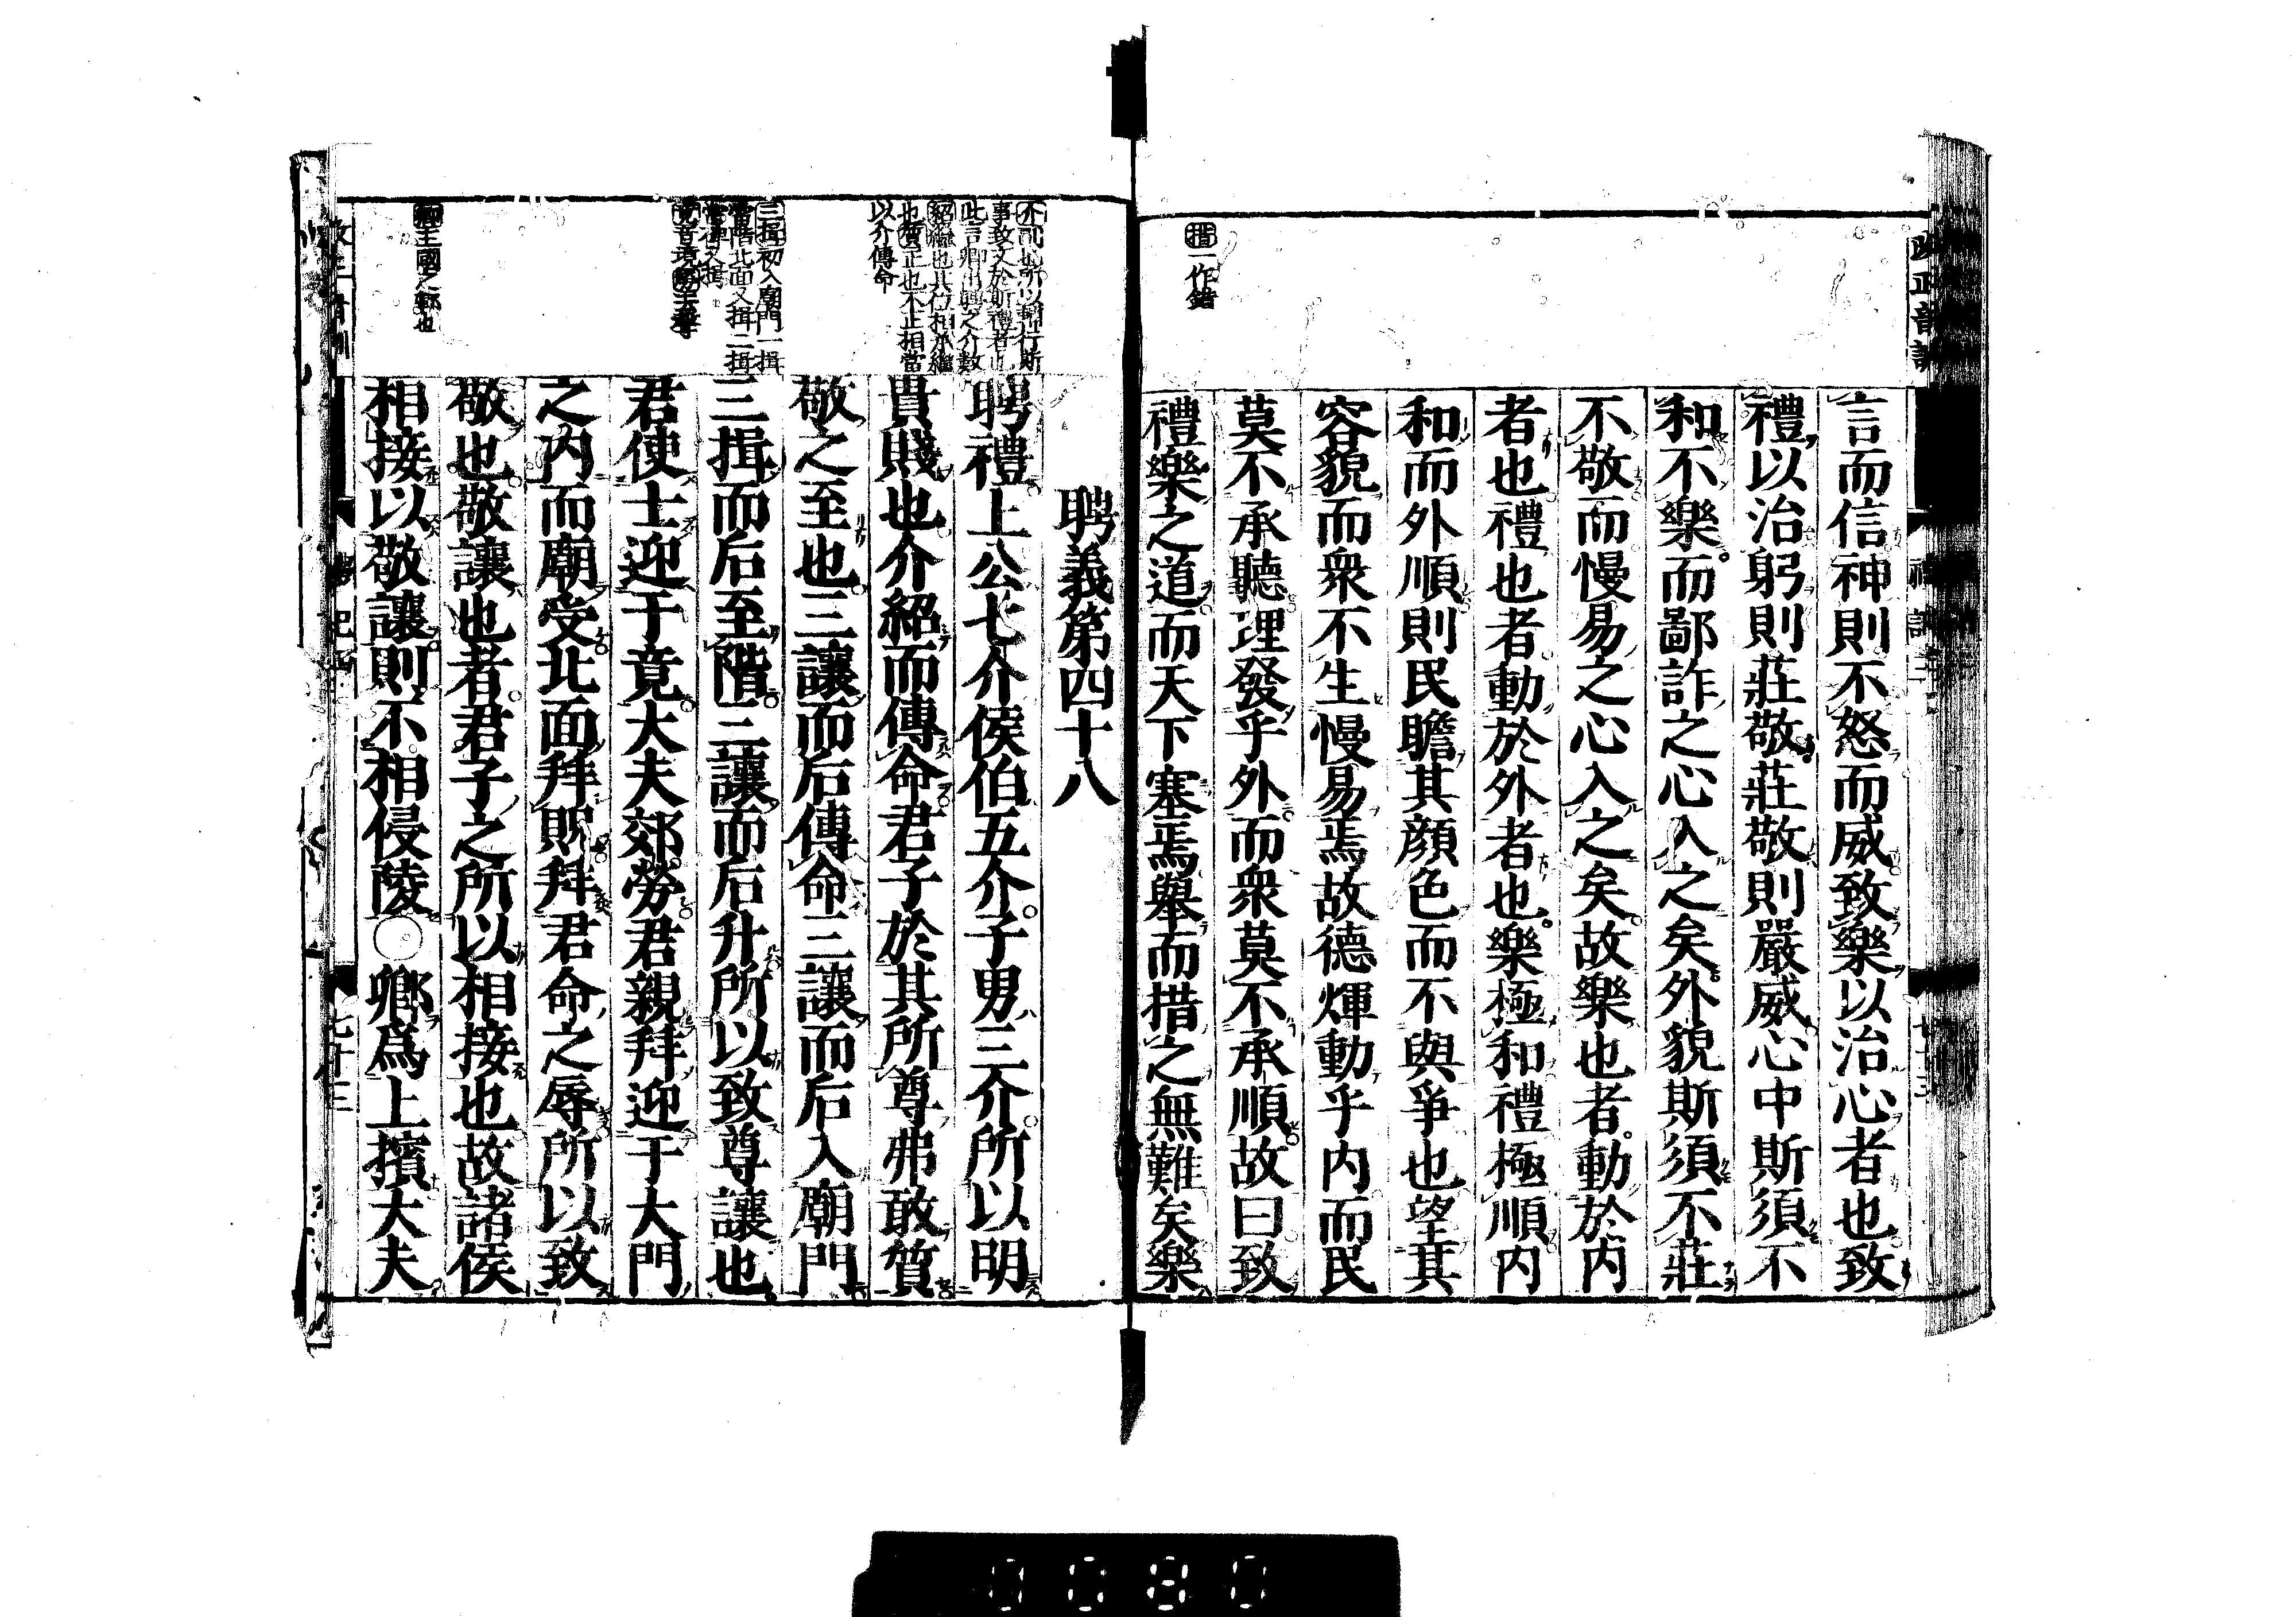 措一作錯
言而信神則不怒而威致樂以治心者也致
禮以治躬則莊敬莊敬則嚴威心中斯須不
和不樂而鄙詐之心入之矣外貌斯須不莊
不敬而慢易之心入之矣故樂也者動於内
者也禮也者動於外者也樂極和禮極順内
和而外順則民瞻其顔色而不與爭也望其
容貌而衆不生慢易焉故德煇動乎内而民
莫不承聽理發乎外而衆莫不承順故曰致
禮樂之道而天下塞焉舉而措之無難矣樂
事致文於斯禮者也
此言卿出聘之介數
紹繼也其位相承繼
也質正也不正相當
以介傳命
三揖初入廟門一揖
當階北面又揖二揖
當碑又揖
聘義第四十八
聘禮上公七介侯伯五介子男三介所以明
貴賤也介紹而傳命君子於其所尊弗敢質
敬之至也三讓而后傳命三讓而后入廟門
三揖而后至階三讓而后升所以致尊讓也
君使士迎于竟大夫郊勞君親拜迎于大門
之内而廟受北面拜貺拜君命之辱所以致
敬也敬讓也者君子之所以相接也故諸侯
相接以敬讓則不相侵陵○卿爲上擯大夫
七十三
0080